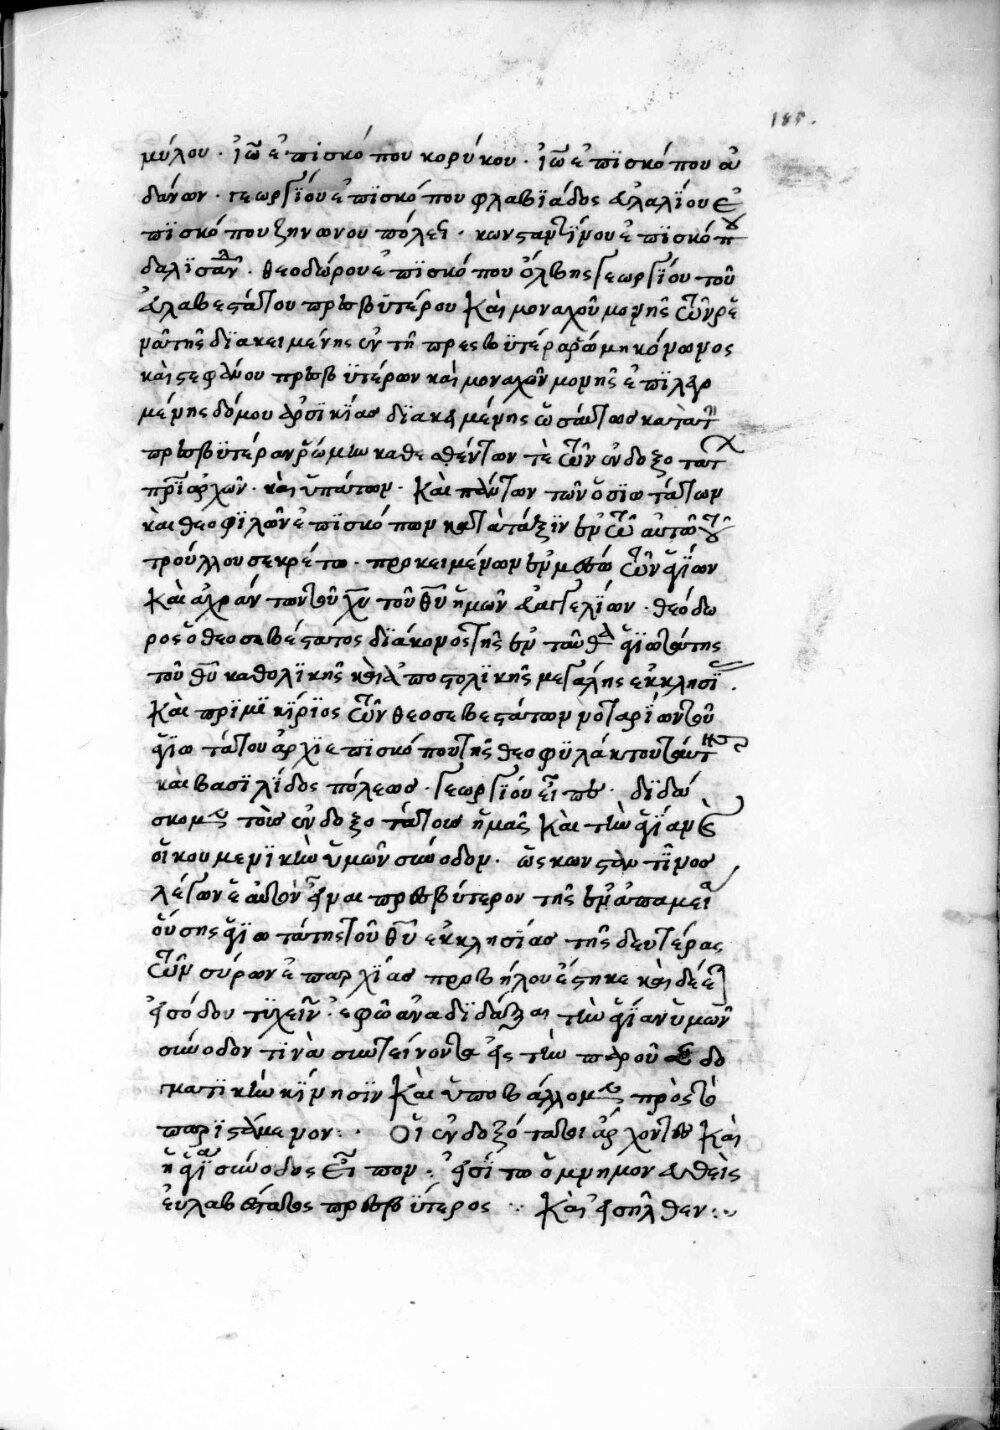 185.
μύλου · ἰω ἐπισκόπου κορύκου · ἰω ἐπϊσκόπου αὐ
δάνων · γεωργΐου ἐπϊσκόπου φλαβϊάδος αἰλαλΐου ἐ
πϊσκόπου ζηνωνουπόλεως · κωνσταντΐνου ἐπϊσκόπου
δαλϊσανδ · θεοδώρου ἐπϊσκόπου ὄλβης γεωργΐου τοῦ
εὐλαβεστάτου πρεσβϋτέρου καὶ μοναχοῦ μονῆς τῶν ρε
νάτης δϊακειμένης ἐν τῆ πρεσβϋτέρα ῥώμη κόνωνος
καὶ στεφάνου πρεσβϋτέρων καὶ μοναχῶν μονῆς ἐπϊλεγο
μένης δόμου ἀρσϊκΐας δϊακειμένης ὡσάυτως κατὰ τὴν
πρεσβϋτέραν ῥώμην καθεσθέντων τὲ τῶν ἐνδοξοτάτ
πατρϊαρχῶν · καὶ ὑπάτων · καὶ πάντων τῶν ὁσϊωτάτων
καὶ θεοφϊλῶν ἐπϊσκόπων κατὰ τάξϊν ἐν τῶ αὐτῶ
τρούλλου σεκρέτω · προκειμένων ἐν μέσω τῶν ἁγΐων
καὶ ἀχράντων τοῦ χυ τοῦ θυ ἡμῶν εὐαγγελΐων · θεόδω
ρος ὁ θεοσεβέστατος δϊάκονος τῆς ἐνταῦθα ἁγϊωτάτης
τοῦ θυ καθολϊκῆς καὶ ἀποστολϊκῆς μεγάλης ἐκκλησΐ
καὶ πρϊμϊκΐρϊος τῶν θεοσεβεστάτων νοταρΐων τοῦ
ἁγϊωτάτου ἀρχϊεπϊσκόπου τῆς θεοφϋλάκτου ταύτης
καὶ βασϊλΐδος πόλεως · γεωργΐου εἶπε · δϊδά
σκομεν τοὺς ἐνδοξοτάτους ἡμᾶς καὶ τὴν ἁγΐαν καὶ
οἰκουμενϊκὴν ὑμῶν σύνοδον · ὡς κωνσταντῖνος
λέγων ἑαυτὸν εἶναι πρεσβύτερον τῆς ἐν ἀπαμεία
οὔσης ἁγϊωτάτης τοῦ θυ ἐκκλησΐας τῆς δευτέρας
τῶν σύρων ἐπαρχΐας πρὸ βήλου ἕστηκε καὶ δέεται
εἰσόδου τϋχεῖν · ἐφ ὧ ἀναδϊδάξαι τὴν ἁγΐαν ὑμῶν
σύνοδον τϊνὰ συντεΐνοντα εἰς τὴν παροῦσαν δο
γματϊκὴν κΐνησϊν καὶ ὑποβάλλομεν πρὸς τὸ
παρϊστάμενον : · Οἱ ἐνδοξότατοι ἄρχοντες καὶ
ἡ ἁγΐα σύνοδος εἶπον : εἰσΐτω ὁ μνημονευθεὶς
εὐλαβέστατος πρεσβϋτερος · : καὶ εἰσῆλθεν : ·